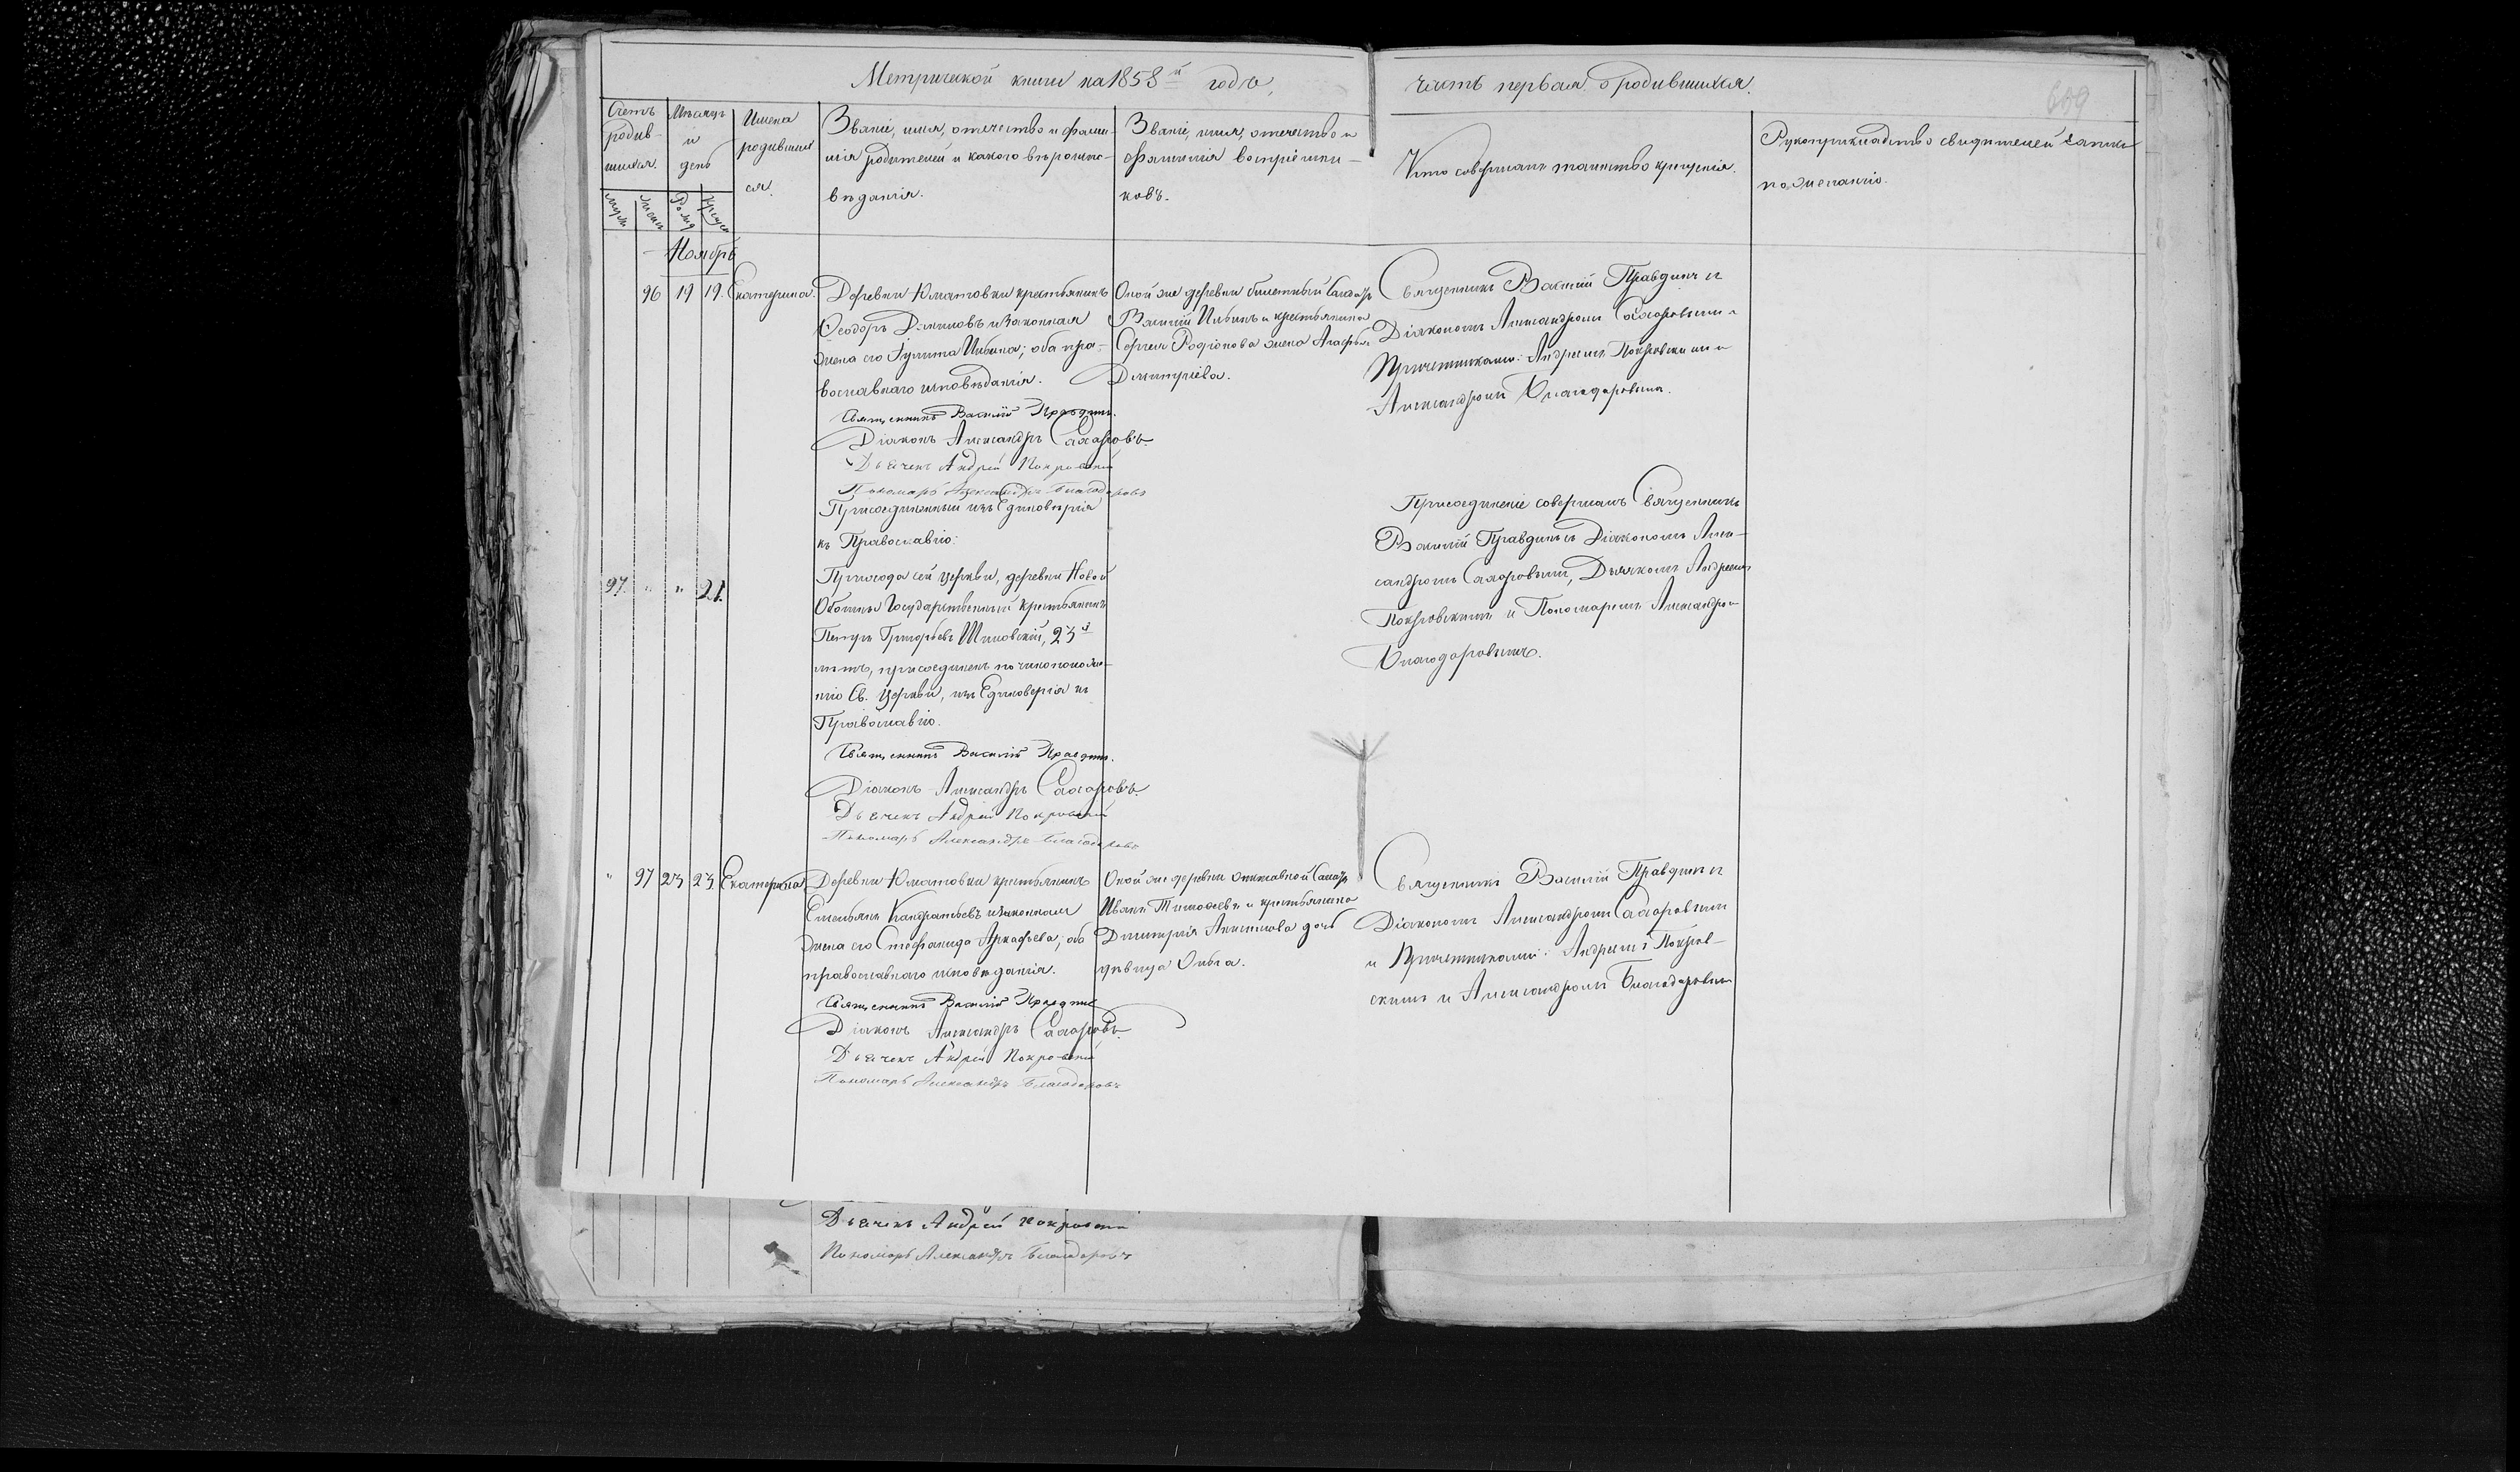 Метрической книги на 1858й годъ,
часть первая о родившихся.
609
Счетъ родив-шихся.
Мѣсяцъ и день
Имена родившихся.
Званіе, имя, отчество и фами-
лія родителей и какого вѣроиспо-
вѣданія.
Званіе, имя, отчество и
фамилія воспріемни-
ковъ.
Кто совершалъ таинство крещенія.
Рукоприкладство свидѣтелей записи
по желанію.
Ноябрь
96 19 19. Екатерина.
Деревни Юматовки крестьянинъ
Ѳеодоръ Даниловъ и законная
жена его Іулита Ильина; оба пра-
вославнаго исповѣданія.
Священникъ Василій Правдинъ.
Діаконъ Александръ Сахаровъ.
Дьячекъ Андрей Покровскій
Пономарь Александръ Благодаровъ
Оной же деревни билетный солдатъ
Василій Ильинъ и крестьянина
Сергея Родіонова жена Агафья
Димитріева.
Священникъ Василій Правдинъ съ
Діакономъ Александромъ Сахаровымъ и
Причетниками: Андреемъ Покровскимъ и
Александромъ Благодаровымъ.
Присоединенный изъ Единовѣрія
къ Православію:
97. " " 21.
Прихода сей церкви, деревни Новой
Государственный крестьянинъ
Петръ Григорьевъ 23й
лѣтъ, присоединенъ по чиноположе-
нію Св. Церкви, изъ Единоверія къ
Православію.
Священникъ Василій Правдинъ.
Діаконъ Александръ Сахаровъ.
Дьячекъ Андрей Покровскій
Пономарь Александръ Благодаровъ
Присоединеніе совершалъ Священникъ
Василій Правдинъ съ Діакономъ Алек-
сандромъ Сахаровымъ, Дьячкомъ Андреемъ
Покровскимъ и Пономаремъ Александромъ
Благодаровымъ.
" 97 23 23 Екатерина
Деревни Юматовки крестьянинъ
Емельянъ Кандратьевъ и законная
жена его Стефанида Аркадьева; оба
православнаго исповѣданія.
Священникъ Василій Правдинъ
Діаконъ Александръ Сахаровъ.
Дьячекъ Андрей Покровскій
Пономарь Александръ Благодаровъ
Оной же деревни отставной солдатъ
Иванъ Тимофеевъ и крестьянина
Димитрія Анисимова дочь
дѣвица Ольга.
Священникъ Василій Правдинъ съ
Діакономъ Александромъ Сахаровымъ
и Причетниками: Андреемъ Покров-
скимъ и Александромъ Благодаровымъ
Дьячекъ Андрей Покровскій
Пономарь Александръ Благодаровъ